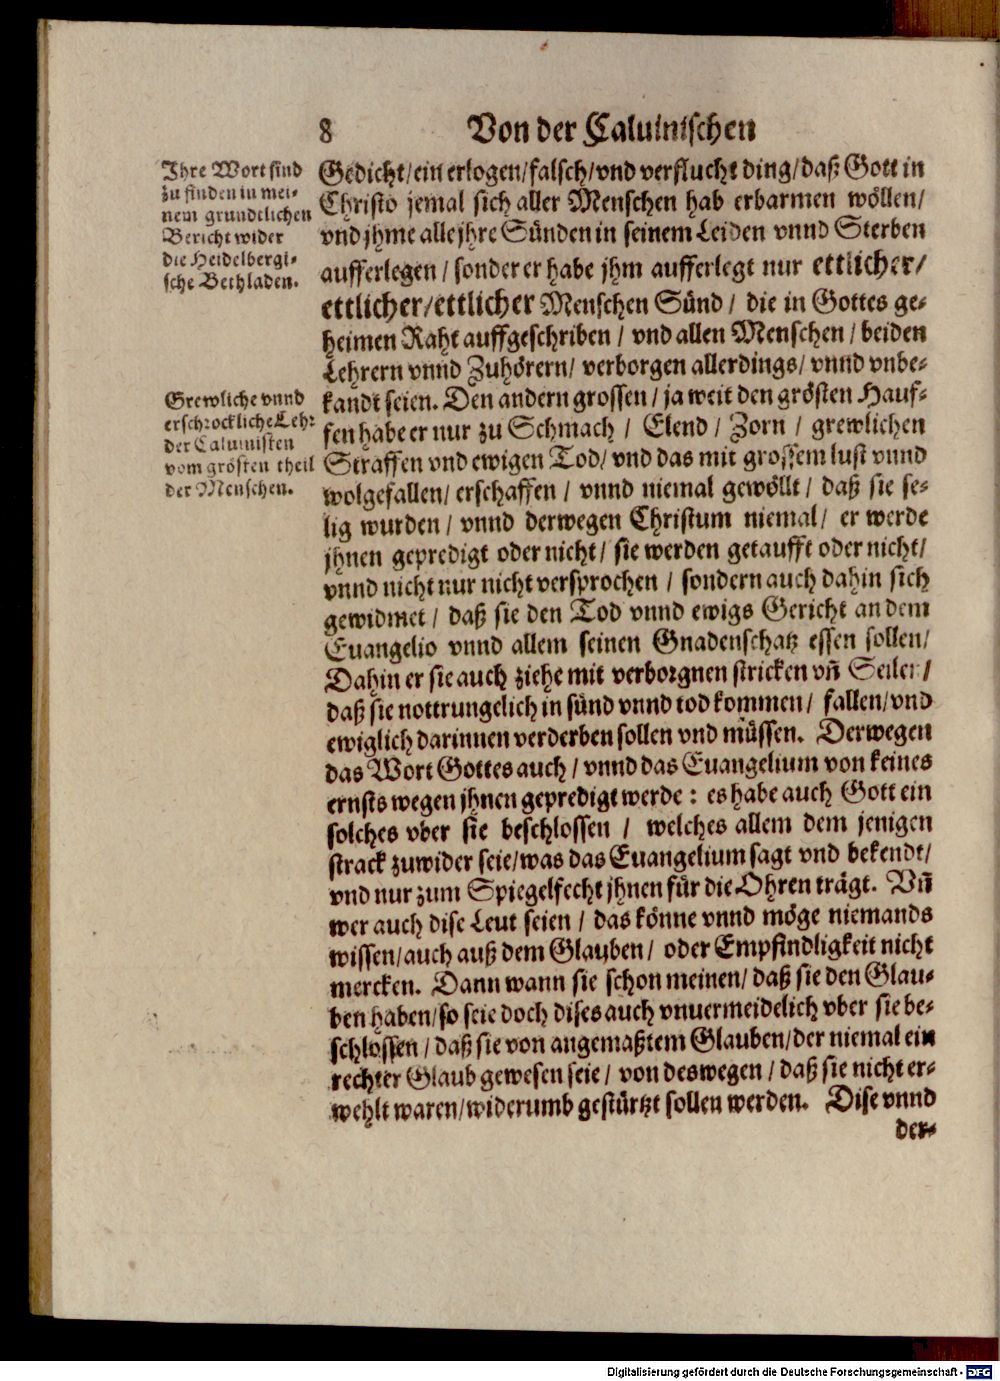 8 Von der Caluinischen
Ihre Wort sind
zu finden in mei-
nem grundtlichen
Bericht wider
die Heidelbergi-
sche Bethladen.
Grewliche vnnd
erschrockliche Lehr
der Caluinisten
vom grösten theil
der Menschen.
Gedicht/ ein erlogen/ falsch/ vnd verflucht ding/ daß Gott in
Christo jemal sich aller Menschen hab erbarmen wöllen/
vnd jhme alle jhre Sünden in seinem Leiden vnnd Sterben
aufferlegen/ sonder er habe jhm aufferlegt nur ettlicher/
ettlicher/ ettlicher Menschen Sünd/ die in Gottes ge-
heimen Raht auffgeschriben/ vnd allen Menschen/ beiden
Lehrern vnnd Zuhörern/ verborgen allerdings/ vnnd vnbe-
kandt seien. Den andern grossen/ ja weit den grösten Hauf-
fen habe er nur zu Schmach/ Elend/ Zorn/ grewlichen
Straffen vnd ewigen Tod/ vnd das mit grossem lust vnnd
wolgefallen/ erschaffen/ vnnd niemal gewöllt/ daß sie se-
lig wurden/ vnnd derwegen Christum niemal/ er werde
jhnen gepredigt oder nicht/ sie werden getaufft oder nicht/
vnnd nicht nur nicht versprochen/ sondern auch dahin sich
gewidmet/ daß sie den Tod vnnd ewigs Gericht an dem
Euangelio vnnd allem seinen Gnadenschatz essen sollen/
Dahin er sie auch ziehe mit verborgnen stricken vñ Seiler/
daß sie nottrungelich in sünd vnnd tod kommen/ fallen/ vnd
ewiglich darinnen verderben sollen vnd müssen. Derwegen
das Wort Gottes auch/ vnnd das Euangelium von keines
ernsts wegen jhnen gepredigt werde: es habe auch Gott ein
solches vber sie beschlossen/ welches allem dem jenigen
strack zuwider seie/ was das Euangelium sagt vnd bekendt/
vnd nur zum Spiegelfecht jhnen für die Ohren trägt. Vñ
wer auch dise Leut seien/ das könne vnnd möge niemands
wissen/ auch auß dem Glauben/ oder Empfindligkeit nicht
mercken. Dann wann sie schon meinen/ daß sie den Glau-
ben haben/ so seie doch dises auch vnuermeidelich vber sie be-
schlossen/ daß sie von angemaßtem Glauben/ der niemal ein
rechter Glaub gewesen seie/ von deswegen/ daß sie nicht er-
wehlt waren/ widerumb gestürtzt sollen werden. Dise vnnd
der-
Digitalisierung gefördert durch die Deutsche Forschungsgemeinschaft - DFG